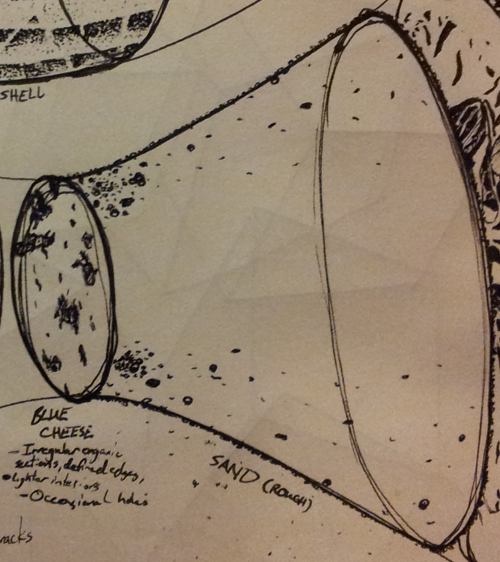 SHELL
BLUE
CHEESE
- Irregular organic
sections, defined edges,
lighter interiors
- Occasional holes
SAND (ROUGH)
racks